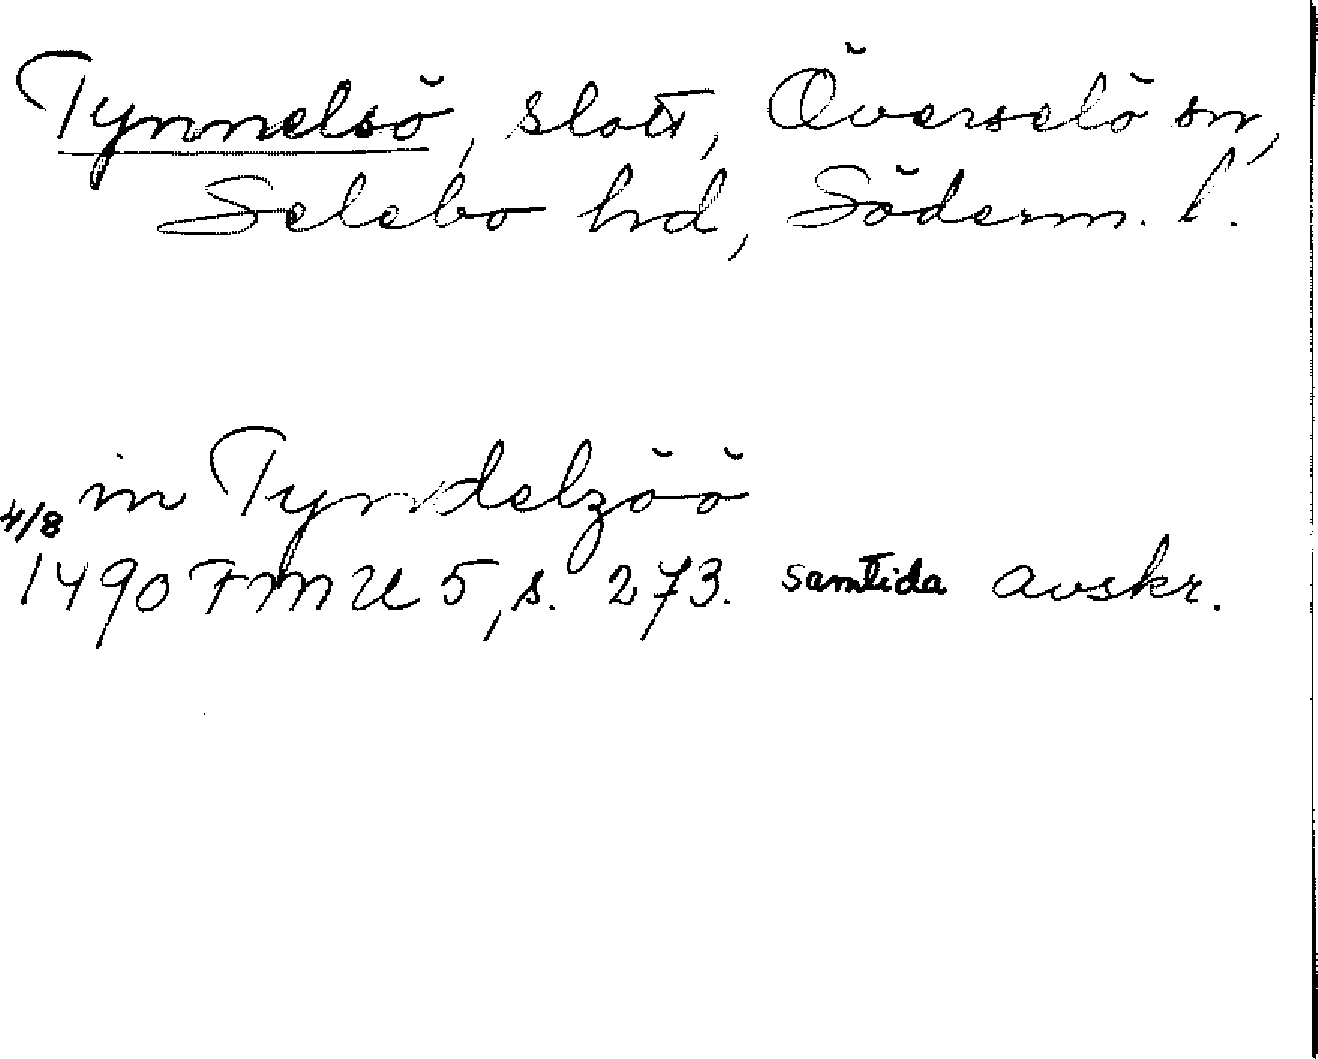 Tynnelsö, slott, Överselö sn,
Selebo hd, Söderm. l.
in Tyndelzöö
4/8
1490 FMU 5, s. 273. samtida avskr.